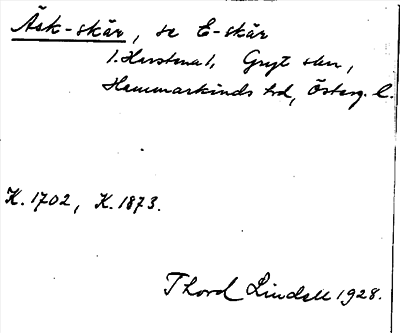 Äsk-skär, se E-skär
1. Harstena 1, Gryt skn,
Hammarkinds hd, Österg. l.
K. 1702, K. 1873.
Thord Lindell 1928.